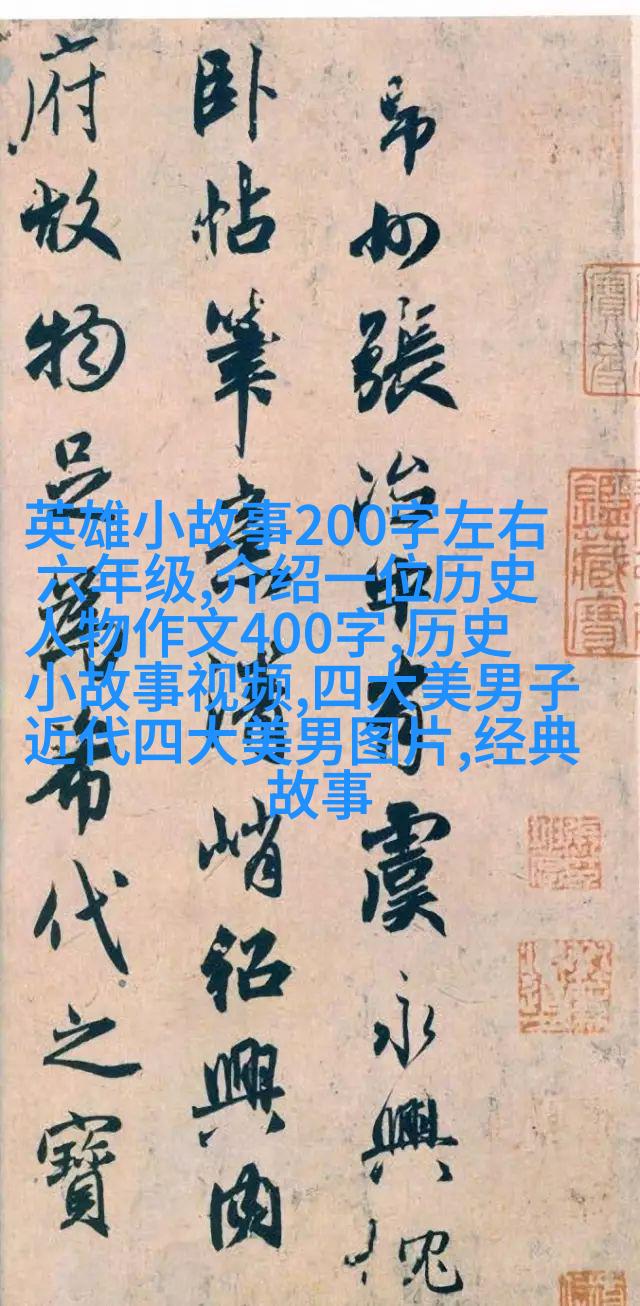 常州張治中有虞永興
卧帖筆意清峭紹興内
府故物足希代之寶
英雄小故事200字左右
六年级,介绍一位历史
人物作文400字,历史
小故事视频,四大美男子
近代四大美男图片,经典
故事
鑑藏寶